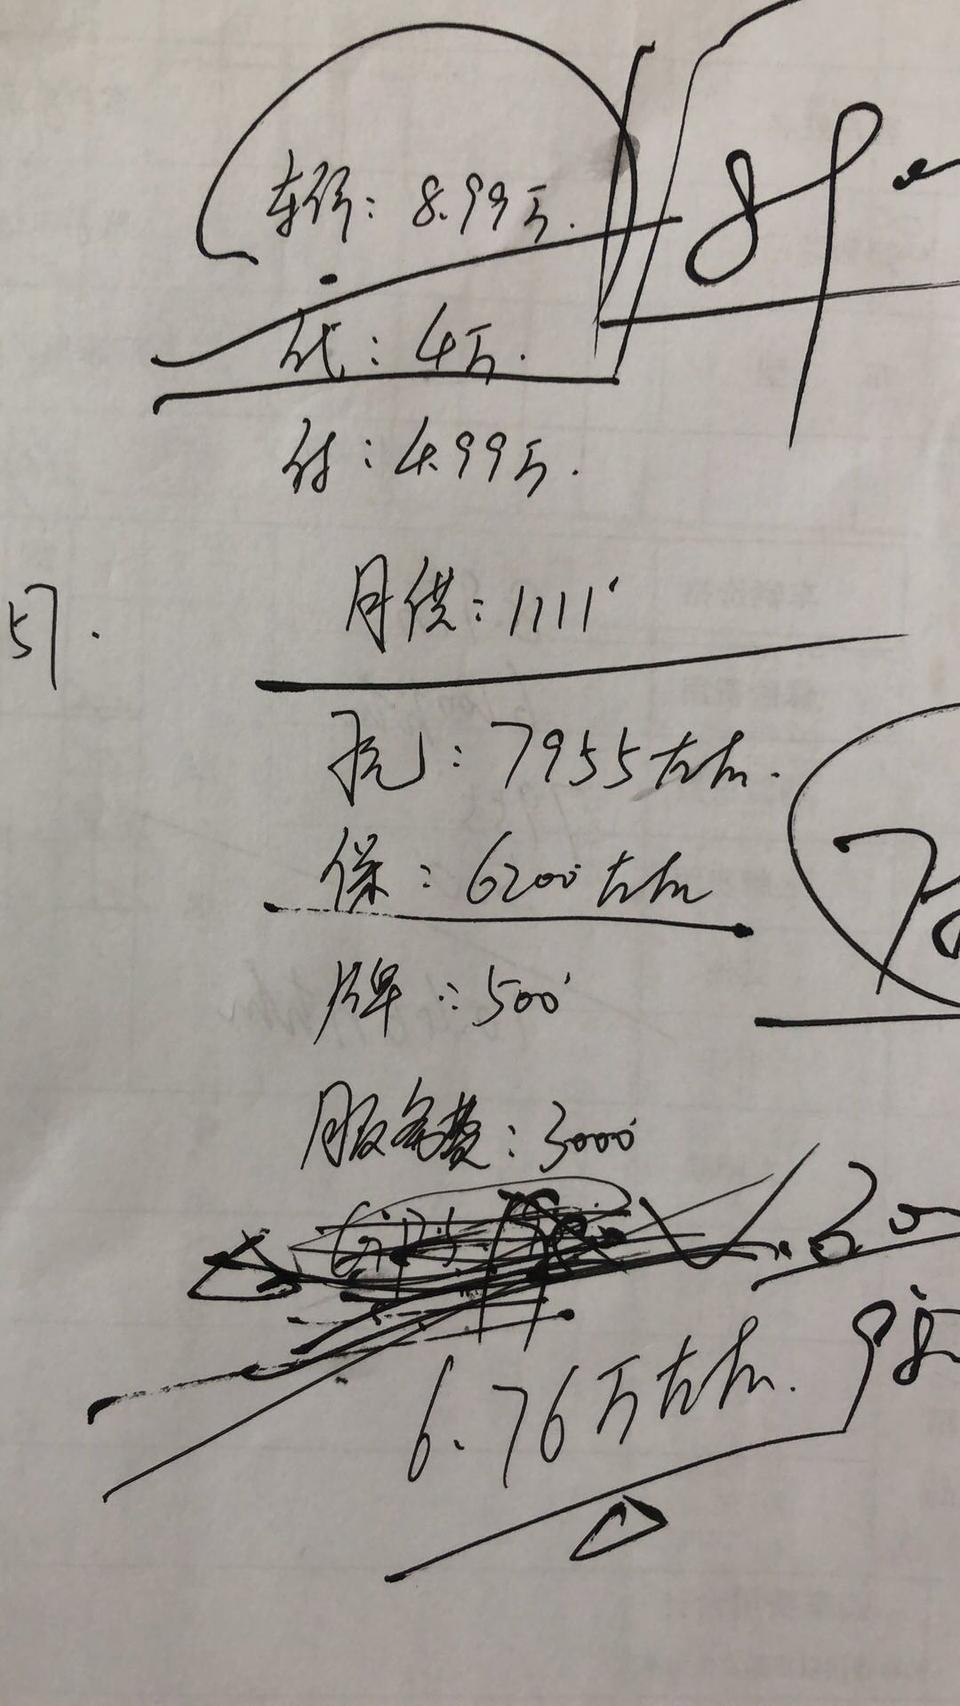 车价：8.99万.
89
贷：4万.
付：4.99万.
57.
月供：1111
税：7955左右.
保：6200左右
牌：500
服务费：3000
GPS
6.76万左右.
98